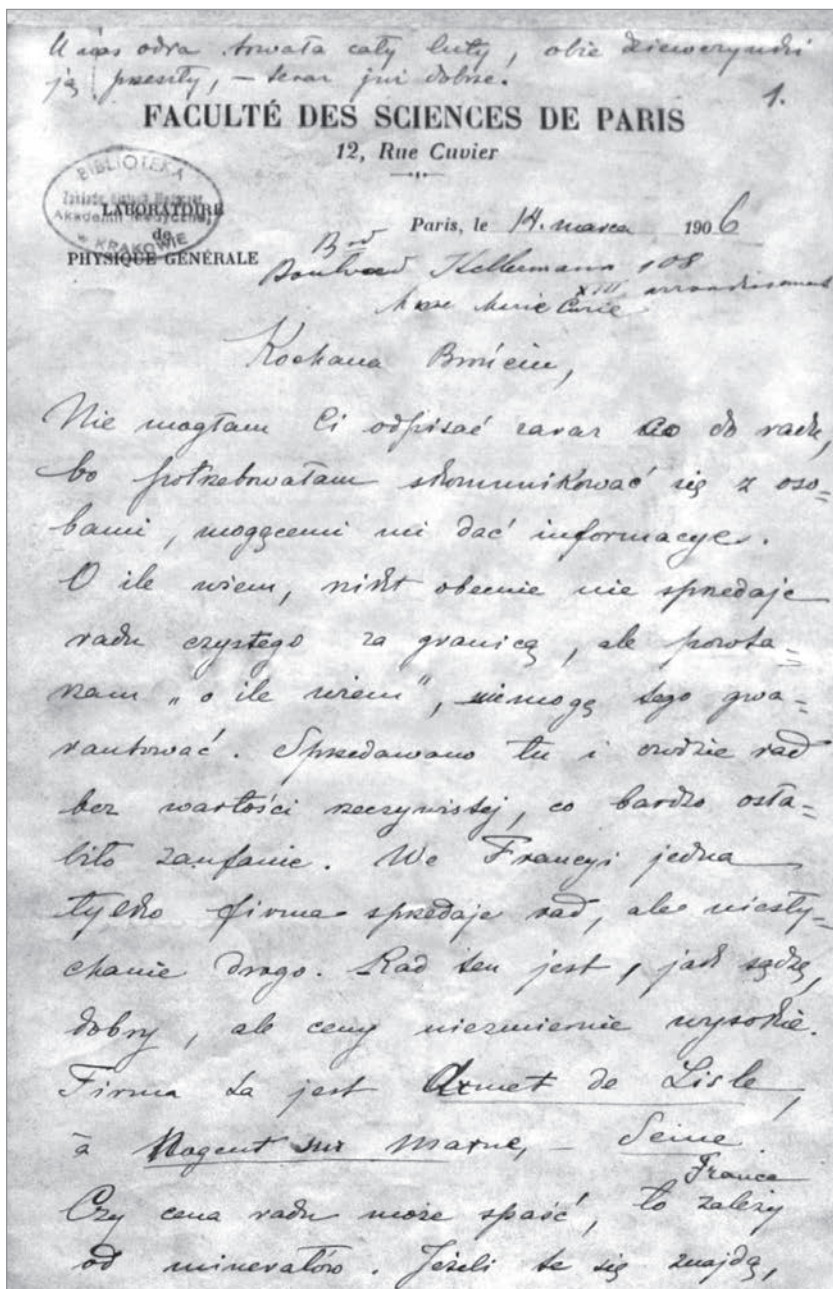 U nas odra trwała cały luty, obie dziewczynki
ją przeszły, – teraz już dobrze.
1.
FACULTÉ DES SCIENCES DE PARIS
12, Rue Cuvier
BIBLIOTEKA
Akademii Medycznej
w KRAKOWIE
LABORATOIRE
de
PHYSIQUE GÉNÉRALE
Paris, le 14. marca 1906
Bvd
Boulevard Kellermann 108
Mme Marie Curie XIII arrondissement
Kochana Bronciu,
Nie mogłam Ci odpisać zaraz co do radu,
bo potrzebowałam skomunikować się z oso-
bami, mogącemi mi dać informacye.
O ile wiem, nikt obecnie nie sprzedaje
radu czystego za granicą, ale powta=
rzam „o ile wiem”, niemogę tego gwa=
rantować. Sprzedawano tu i owdzie rad
bez wartości rzeczywistej, co bardzo osła=
biło zaufanie. We Francyi jedna
tylko firma sprzedaje rad, ale niesły=
chanie drogo. Rad ten jest, jak sądzę,
dobry, ale ceny niezmiernie wysokie.
Firma ta jest Armet de Lisle,
à Nogent sur Marne, – Seine
France
Czy cena radu może spaść, to zależy
od minerałów. Jeżeli te się znajdą,